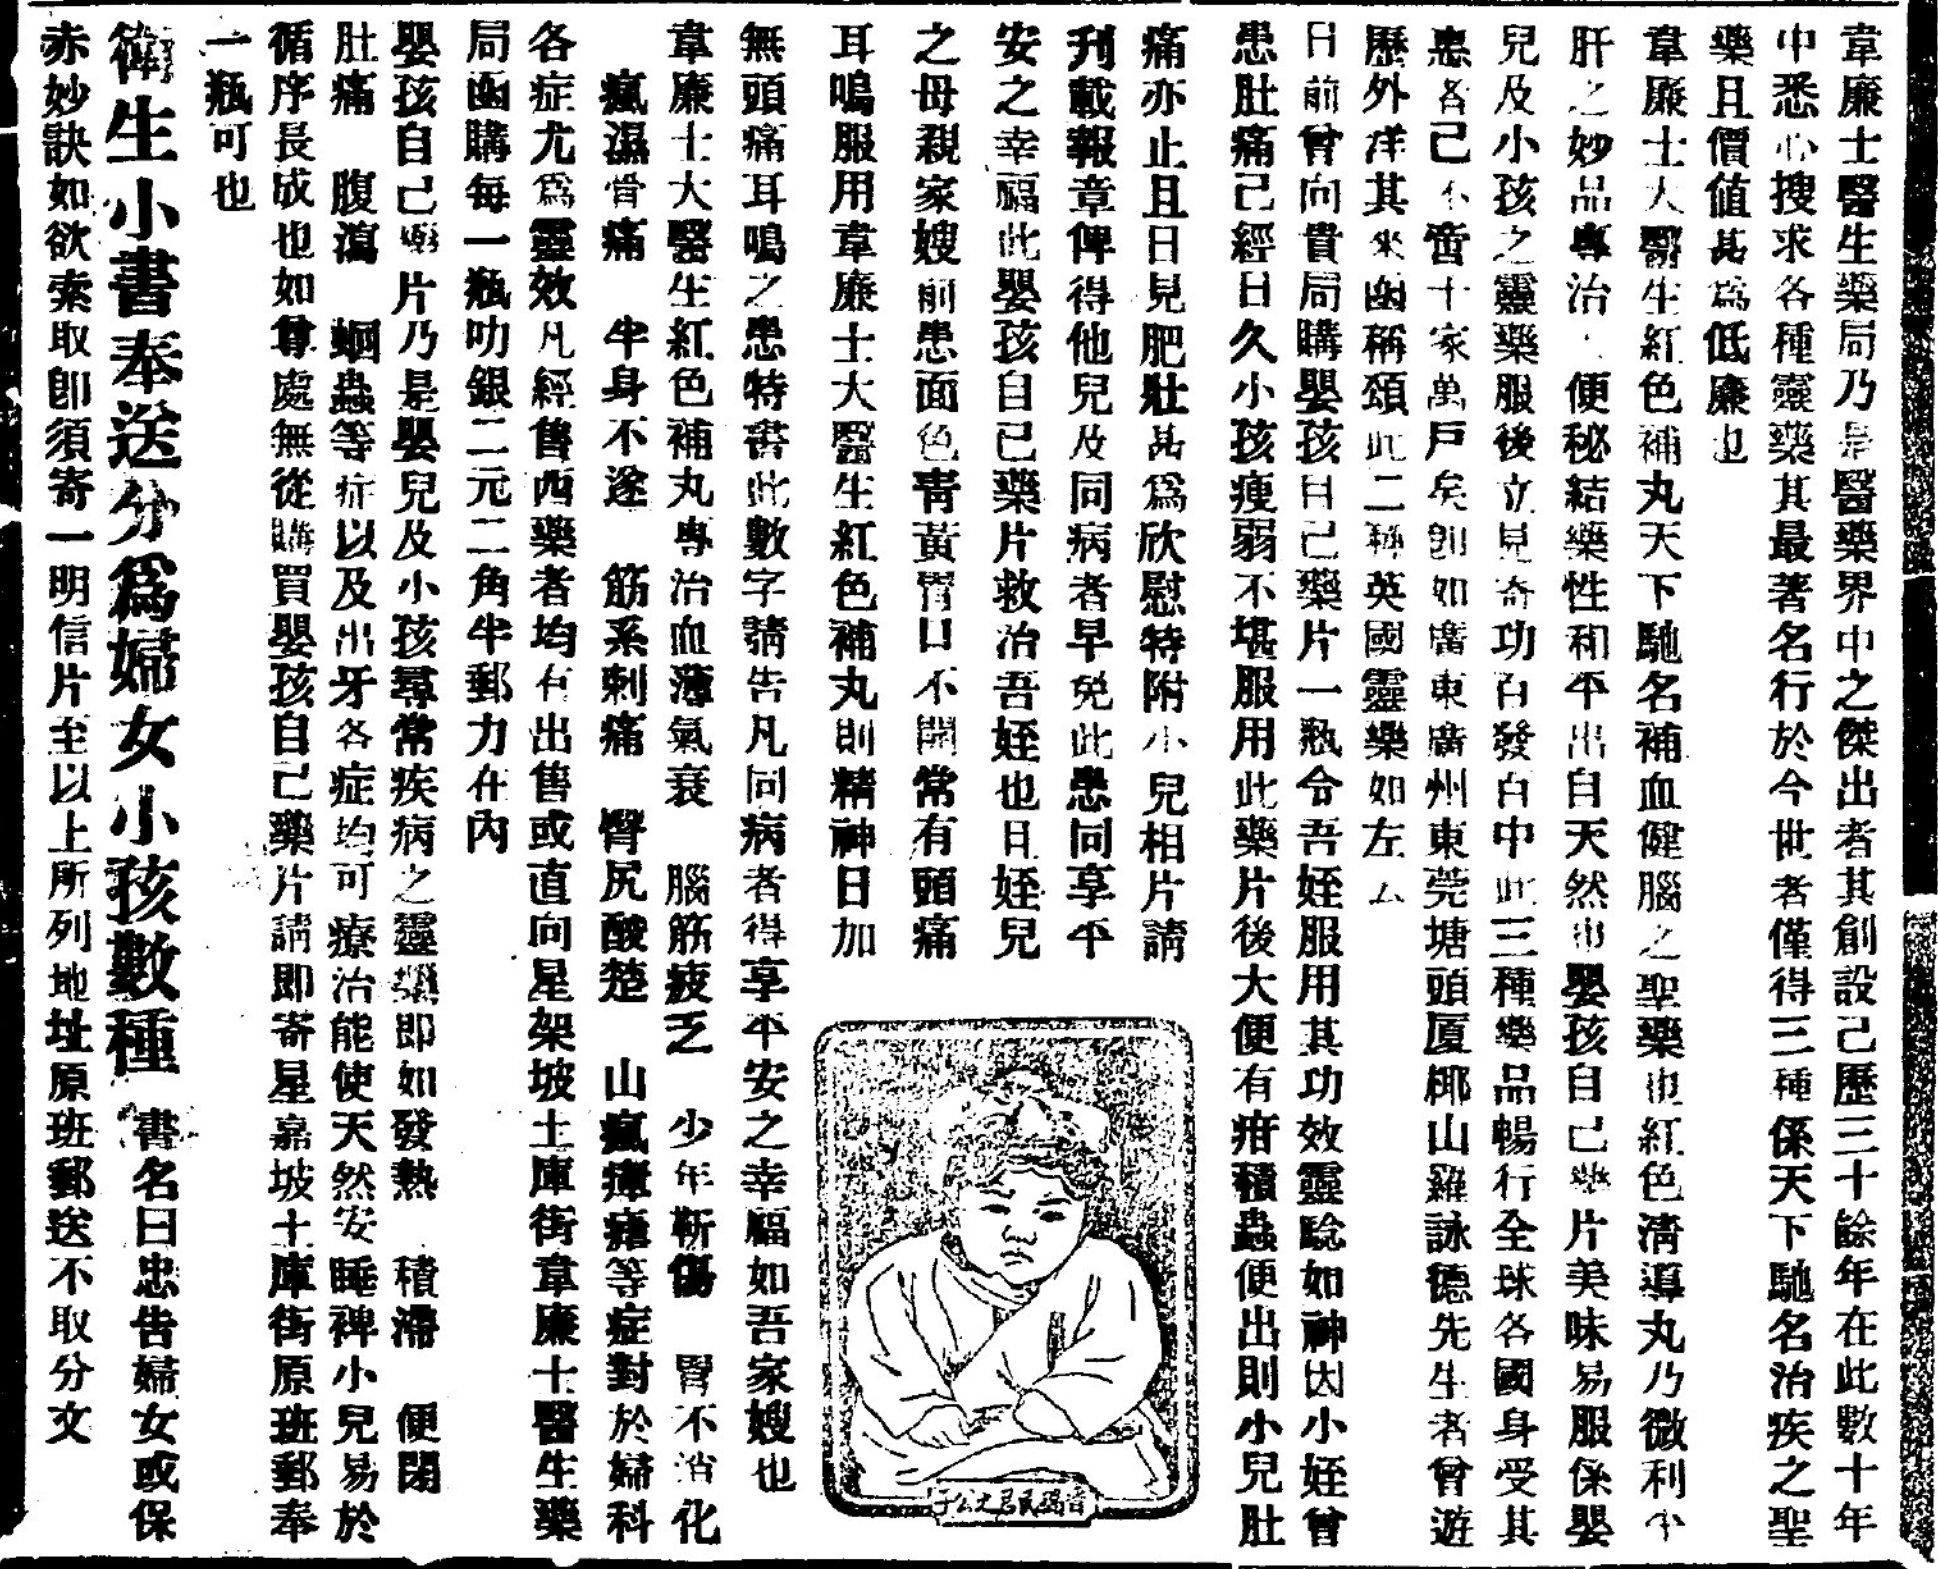 韋廉士醫生藥局乃是醫藥界中之傑出者其創設己歷三十餘年在此數十年
中悉心搜求各種靈藥其最著名行於今世者僅得三種係天下馳名治疾之聖
藥且價值甚爲低廉也
韋廉士大醫生紅色補丸天下馳名補血健腦之聖藥也紅色清導丸乃微利平
肝之妙品專治 便秘結藥性和平出自天然也嬰孩自己藥片美味易服係嬰
兒及小孩之靈藥藥服後立見奇功百發百中此三種藥品暢行全球各國身受其
惠者己不啻十家萬戶矣卽如廣東廣州東莞塘頭厦椰山羅詠德先生者曾遊
歷外洋其來函稱頌此二種英國靈藥如左厶
日前曾向貴局購嬰孩自己藥片一瓶令吾姪服用其功效靈騐如神因小姪曾
患肚痛己經日久小孩瘦弱不堪服用此藥片後大便有疳積蟲便出則小兒肚
痛亦止且日見肥壯甚爲欣慰特附小兒相片請
刋載報章俾得他兒及同病者早免此患同享平
安之幸福此嬰孩自已藥片救治吾姪也日姪兒
之母親家嫂前患面色靑黃胃口不開常有頭痛
耳鳴服用韋廉士大醫生紅色補丸則精神日加
無頭痛耳鳴之患特書此數字請告凡同病者得享平安之幸福如吾家嫂也
韋廉士大醫生紅色補丸專治血薄氣衰 腦筋疲乏 少年斲傷 胃不消化
瘋濕骨痛 半身不遂 筋系刺痛 臀尻酸楚 山瘋瘴瘧等症對於婦科
各症尤爲靈效凡經售西藥者均有出售或直向星架坡土庫街韋廉士醫生藥
局函購每一瓶叻銀二元二角半郵力在內
嬰孩自己藥片乃是嬰兒及小孩尋常疾病之靈藥即如發熱 積滯 便閉
肚痛 腹瀉 蛔蟲等症以及出牙各症均可療治能使天然安睡裨小兒易於
循序長成也如尊處無從購買嬰孩自己藥片請即寄星嘉坡土庫街原班郵奉
一瓶可也
衛生小書奉送分爲婦女小孩數種 書名曰忠告婦女或保
赤妙訣如欲索取卽須寄一明信片至以上所列地址原班郵送不取分文